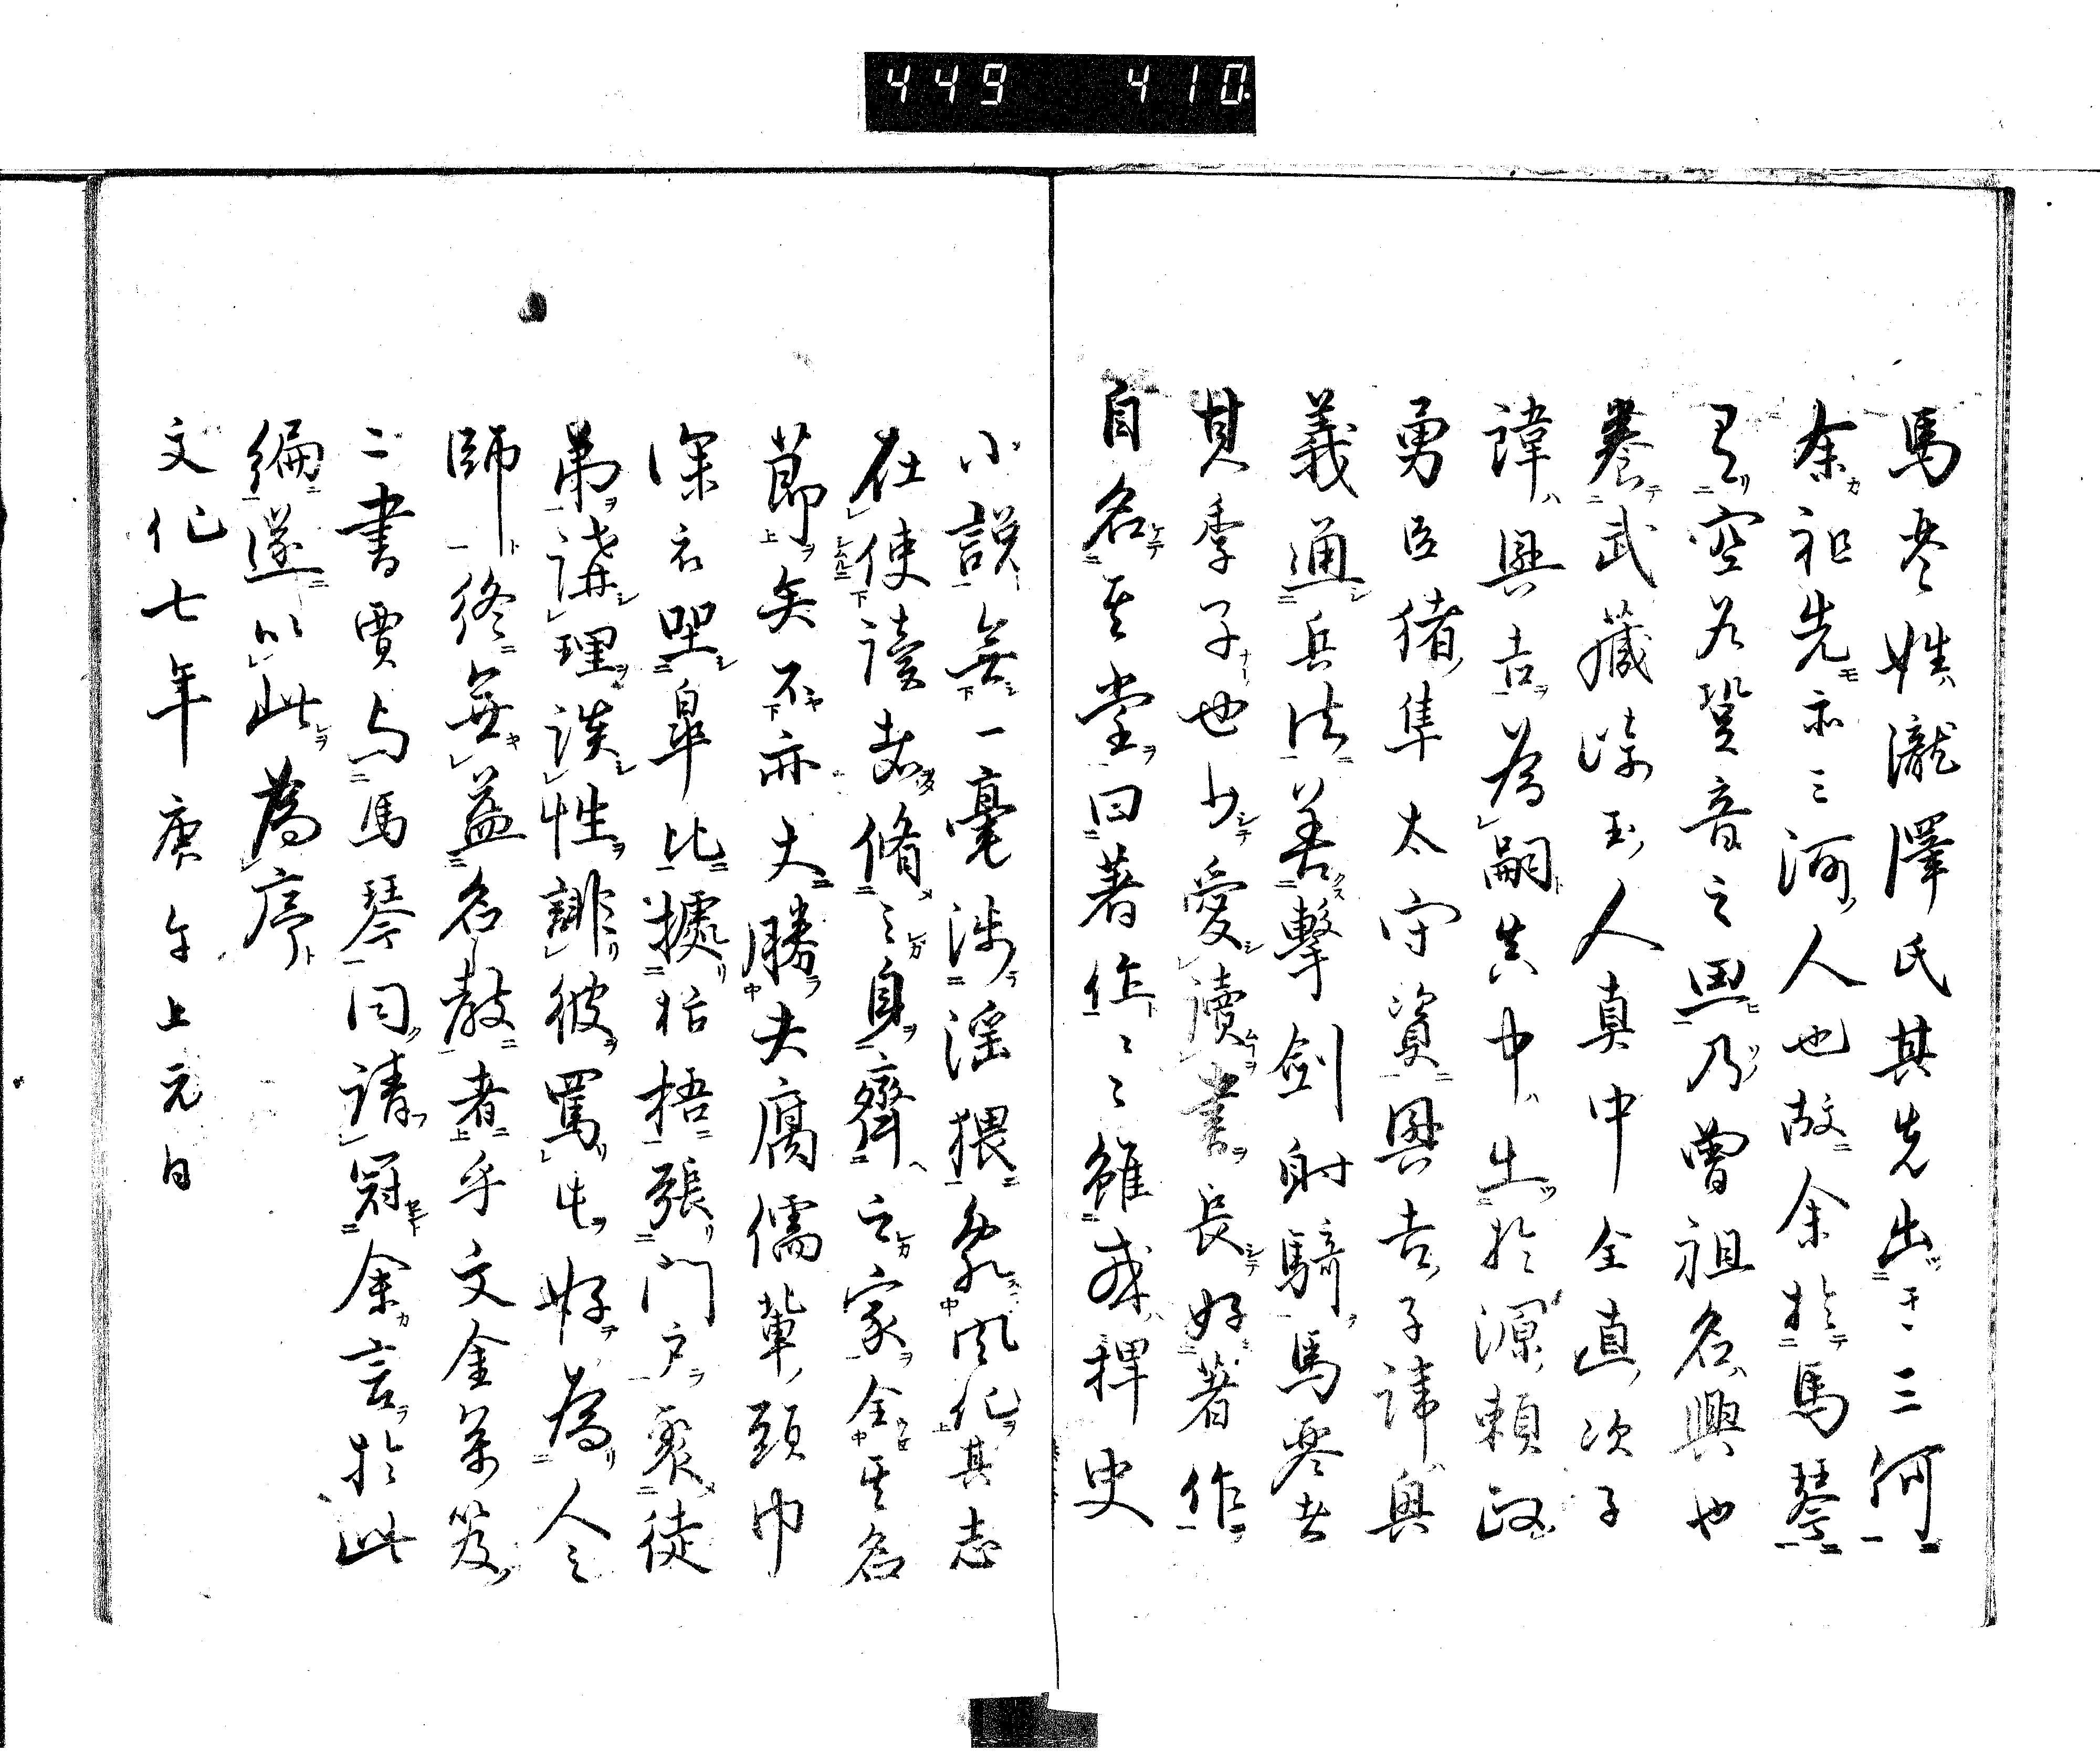 449 410
馬琴姓瀧澤氏其先出于三河
余祖先亦三河人也故余於馬琴
有空谷跫音之思乃曾祖名興也
養武藏埼玉人真中全直次子
諱興吉為嗣真中出於源頼政
勇臣猪隼太守資興吉子諱興
義通兵法善擊劍射騎馬琴者
其季子也少愛讀書長好著作
自名其堂曰著作々々雖戒稗史
小說無一毫涉滛猥亂風化其志
在使讀者脩之身齊之家全其名
節矣不亦丈勝夫腐儒輩頭巾
深衣坐皐比據梧張門戶聚徒
弟講理談性誹彼罵此好為人之
師終無益名敎者乎文金萬笈
二書賈与馬琴同請冠余言於此
編遂以此為序
文化七年庚午上元日